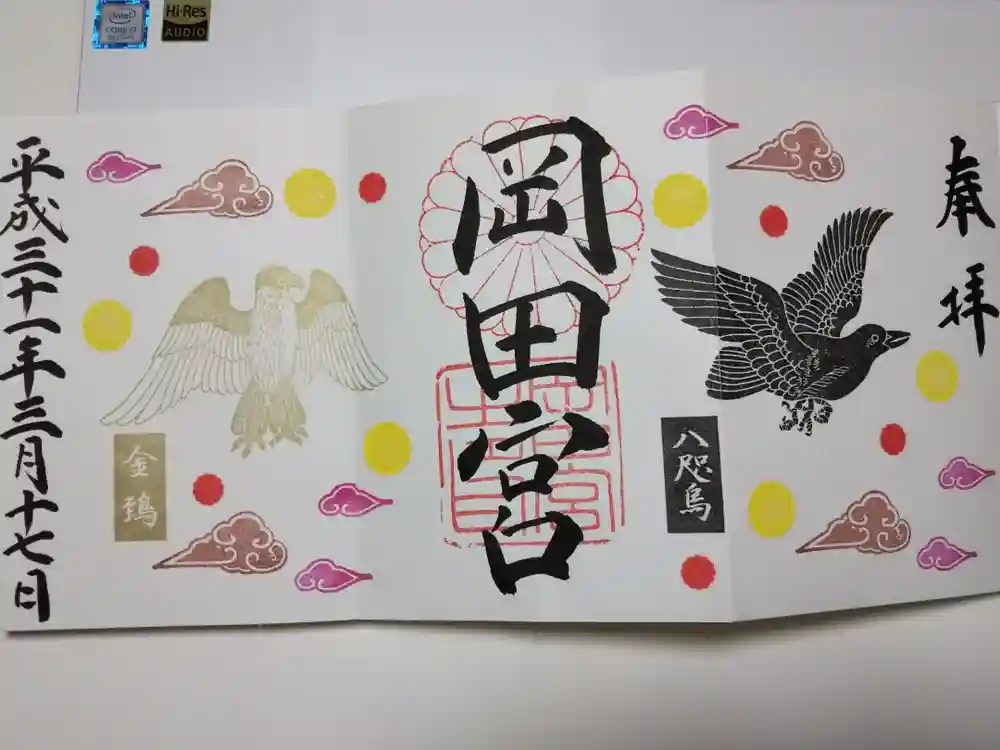 intel
CORE i7
Hi-Res
AUDIO
奉拝
八咫烏
岡田宮
金鵄
平成三十一年三月十七日